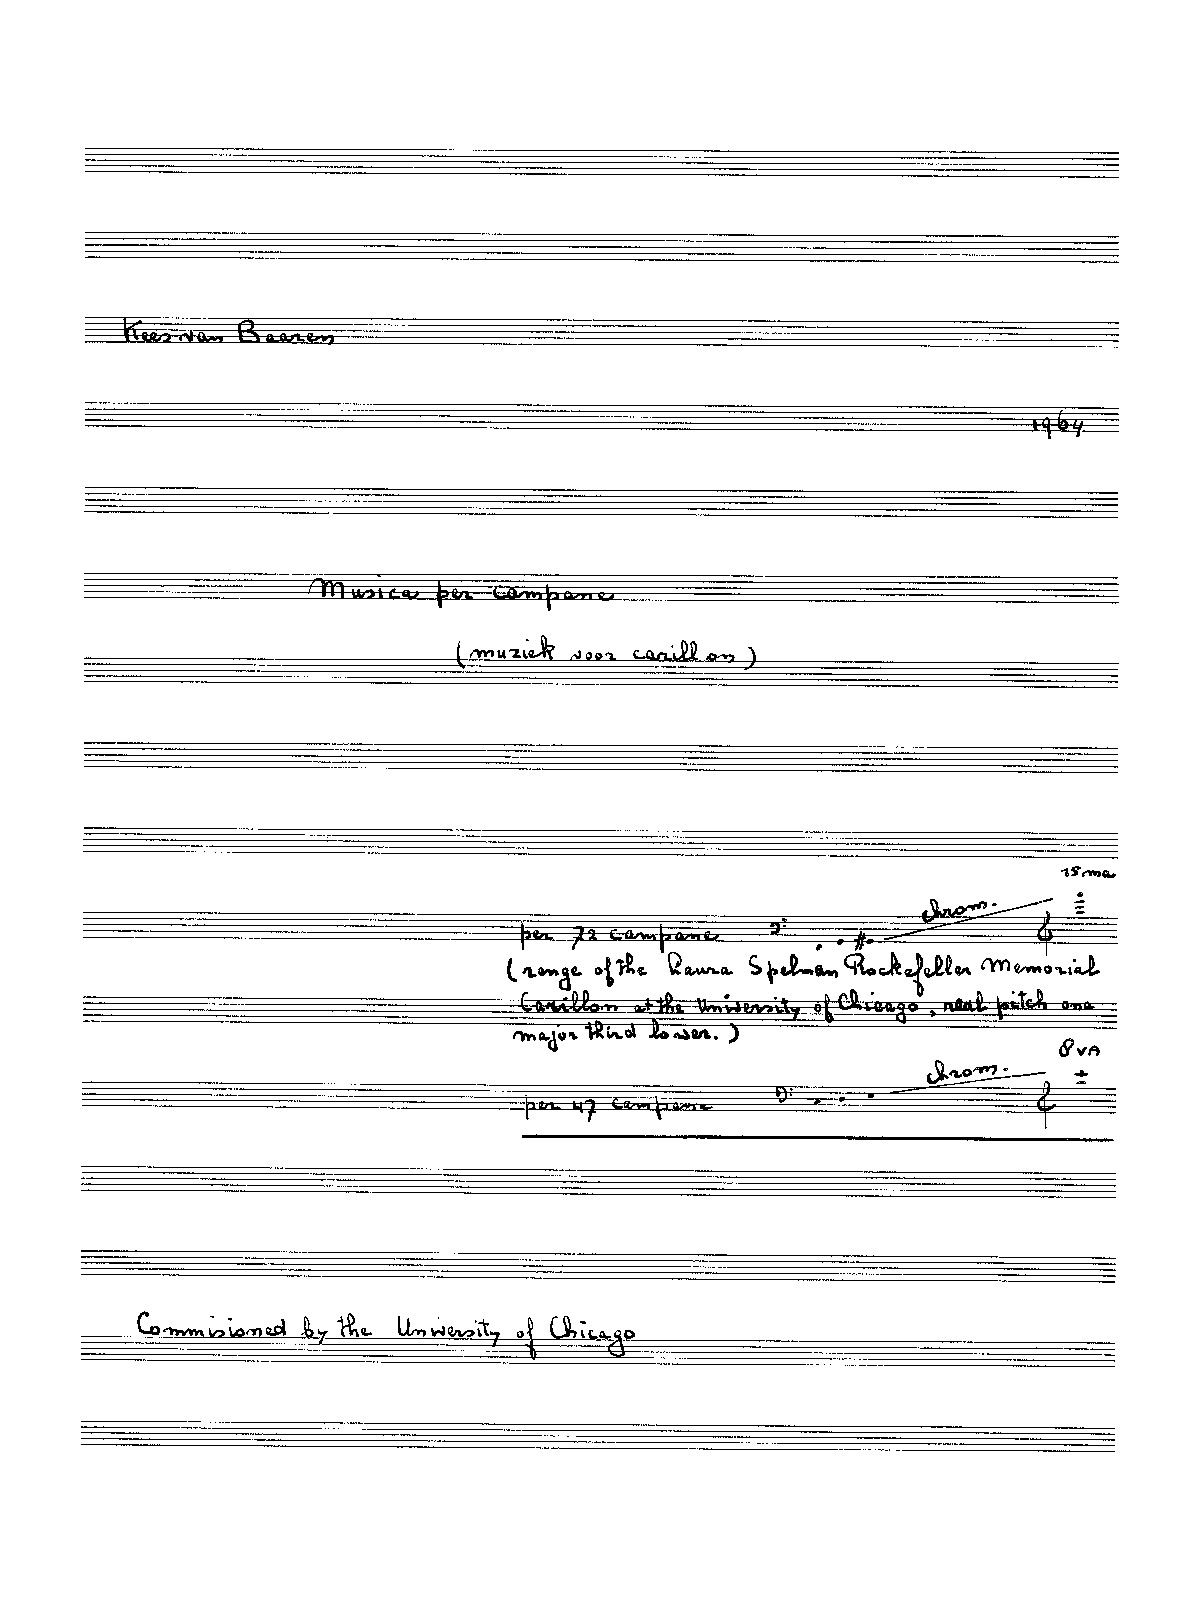 Kees van Baaren
1964
Musica per campane
(muziek voor carillon)
15 ma
chrom.
per 72 campane
(range of the Laura Spelman Rockefeller Memorial
Carillon at the University of Chicago, real pitch one
major third lower.)
8va
chrom.
per 47 campane
Commisioned by the University of Chicago